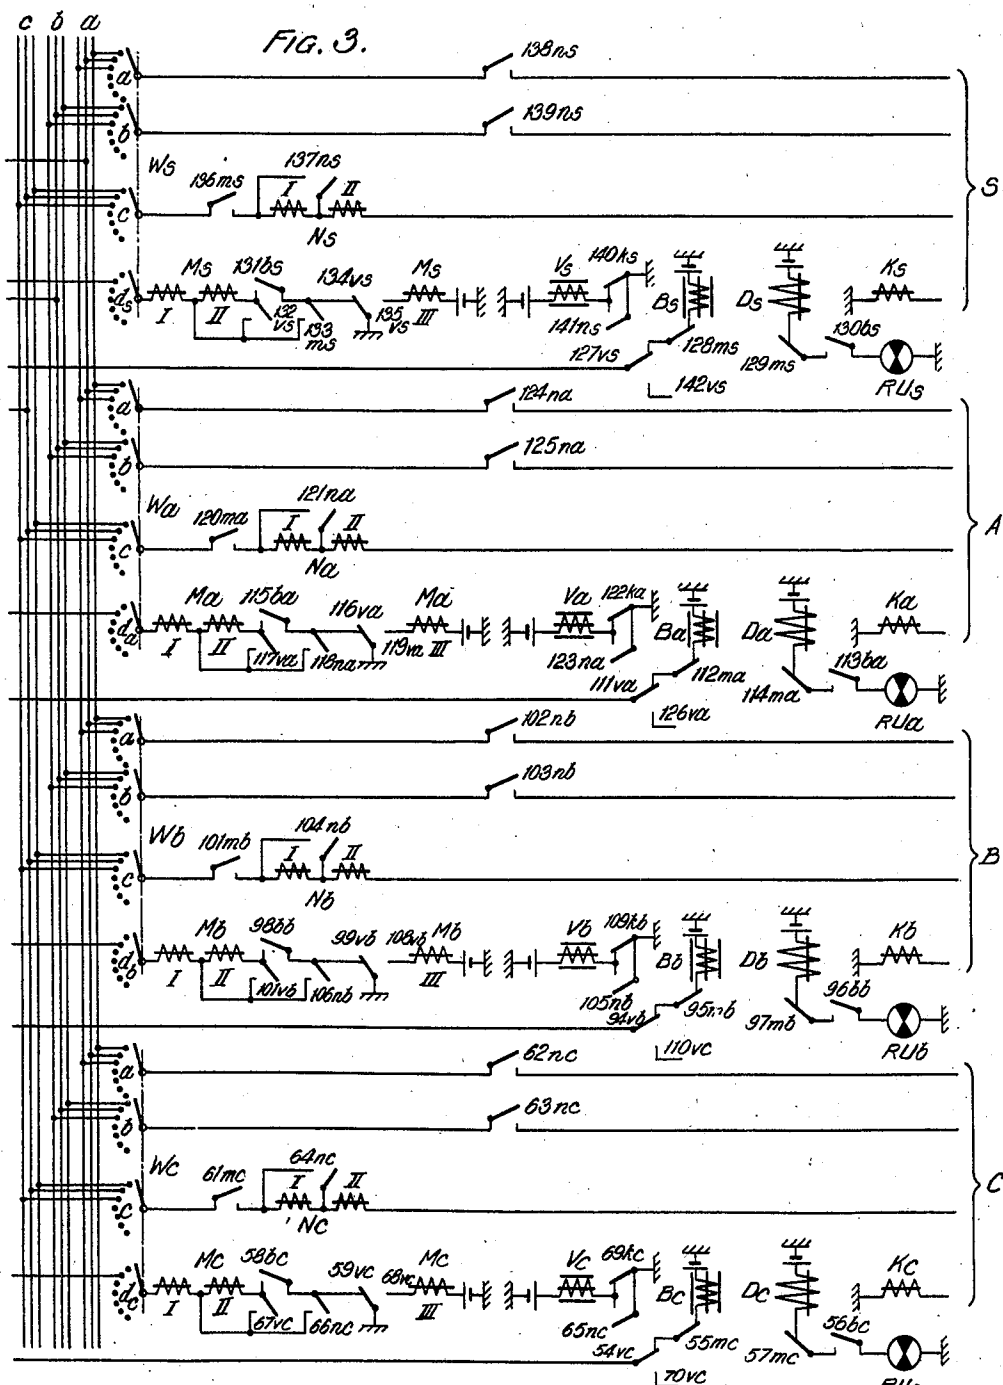 c b a
FIG. 3.
a 138ns
b 139ns
Ws 137ns
136ms I II
c Ns
S
Ms 131bs 134vs Ms Vs 140ks Bs Ds Ks
ds I II 132vs 133ms 135vs III 141ns
127vs 128ms 129ms 130bs
142vs RUs
a 124na
b 125na
Wa 121na
120ma I II
c Na
A
Ma 115ba 116va Ma Va 122ka Ba Da Ka
da I II 117va 118na 119va III 123na
111va 112ma 114ma 113ba
126va RUa
a 102nb
b 103nb
Wb 101mb 104nb
I II
c Nb
B
Mb 98bb 99vb 108vb Mb Vb 109kb Bb Db Kb
db I II 101vb 106nb III 105nb
94vb 95mb 97mb 96bb
110vc RUb
a 62nc
b 63nc
Wc 61mc 64nc
I II
c Nc
C
Mc 58bc 59vc 68vc Mc Vc 69kc Bc Dc Kc
dc I II 67vc 66nc III 65nc
54vc 55mc 57mc 56bc
70vc